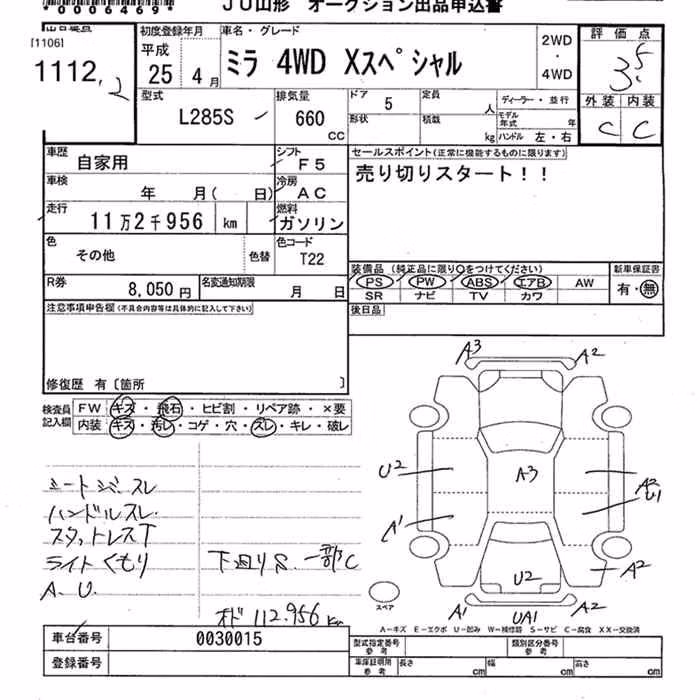 *0006469*
JU山形 オークション出品申込書
[1106]
1112, 2
初度登録年月
平成
25年 4月
車名・グレード
ミラ 4WD Xスペシャル
2WD
・
4WD
評価点
3.5
外装 内装
C C
型式
L285S
排気量
660
CC
ドア
5
定員
人
形状
積載
kg
ディーラー・並行
モデル年式 年
ハンドル 左・右
車歴
自家用
シフト
F5
車検
年 月( 日)
冷房
AC
走行
11万2千956 km
燃料
ガソリン
色
その他
色替
色コード
T22
R券
8,050円
名変通知期限
月 日
セールスポイント(正常に機能するものに限ります)
売り切りスタート!!
装備品 (純正品に限り○をつけてください)
PS PW ABS エアB AW
SR ナビ TV カワ
新車保証書
有・無
後日品
注意事項申告欄(不具合内容等は具体的に記入して下さい)
修復歴 有〔箇所 〕
検査員記入欄
FW キズ・飛石・ヒビ割・リペア跡・×要
内装 キズ・汚レ・コゲ・穴・スレ・キレ・破レ
シートシミ.スレ
ハンドルスレ.
スタットレスT
ライトくもり
A. U.
下廻りS. 一部C
オド 112.956 km
A3 A2
U2 A3 A2 U1
A1
U2 A2
A1 UA1 A2
スペア
A-キズ E-エクボ U-凹み W-補修跡 S-サビ C-腐食 XX-交換済
車台番号
0030015
登録番号
型式指定番号 参考
類別区分番号 参考
車庫証明用 参考
長さ cm 幅 cm 高さ cm